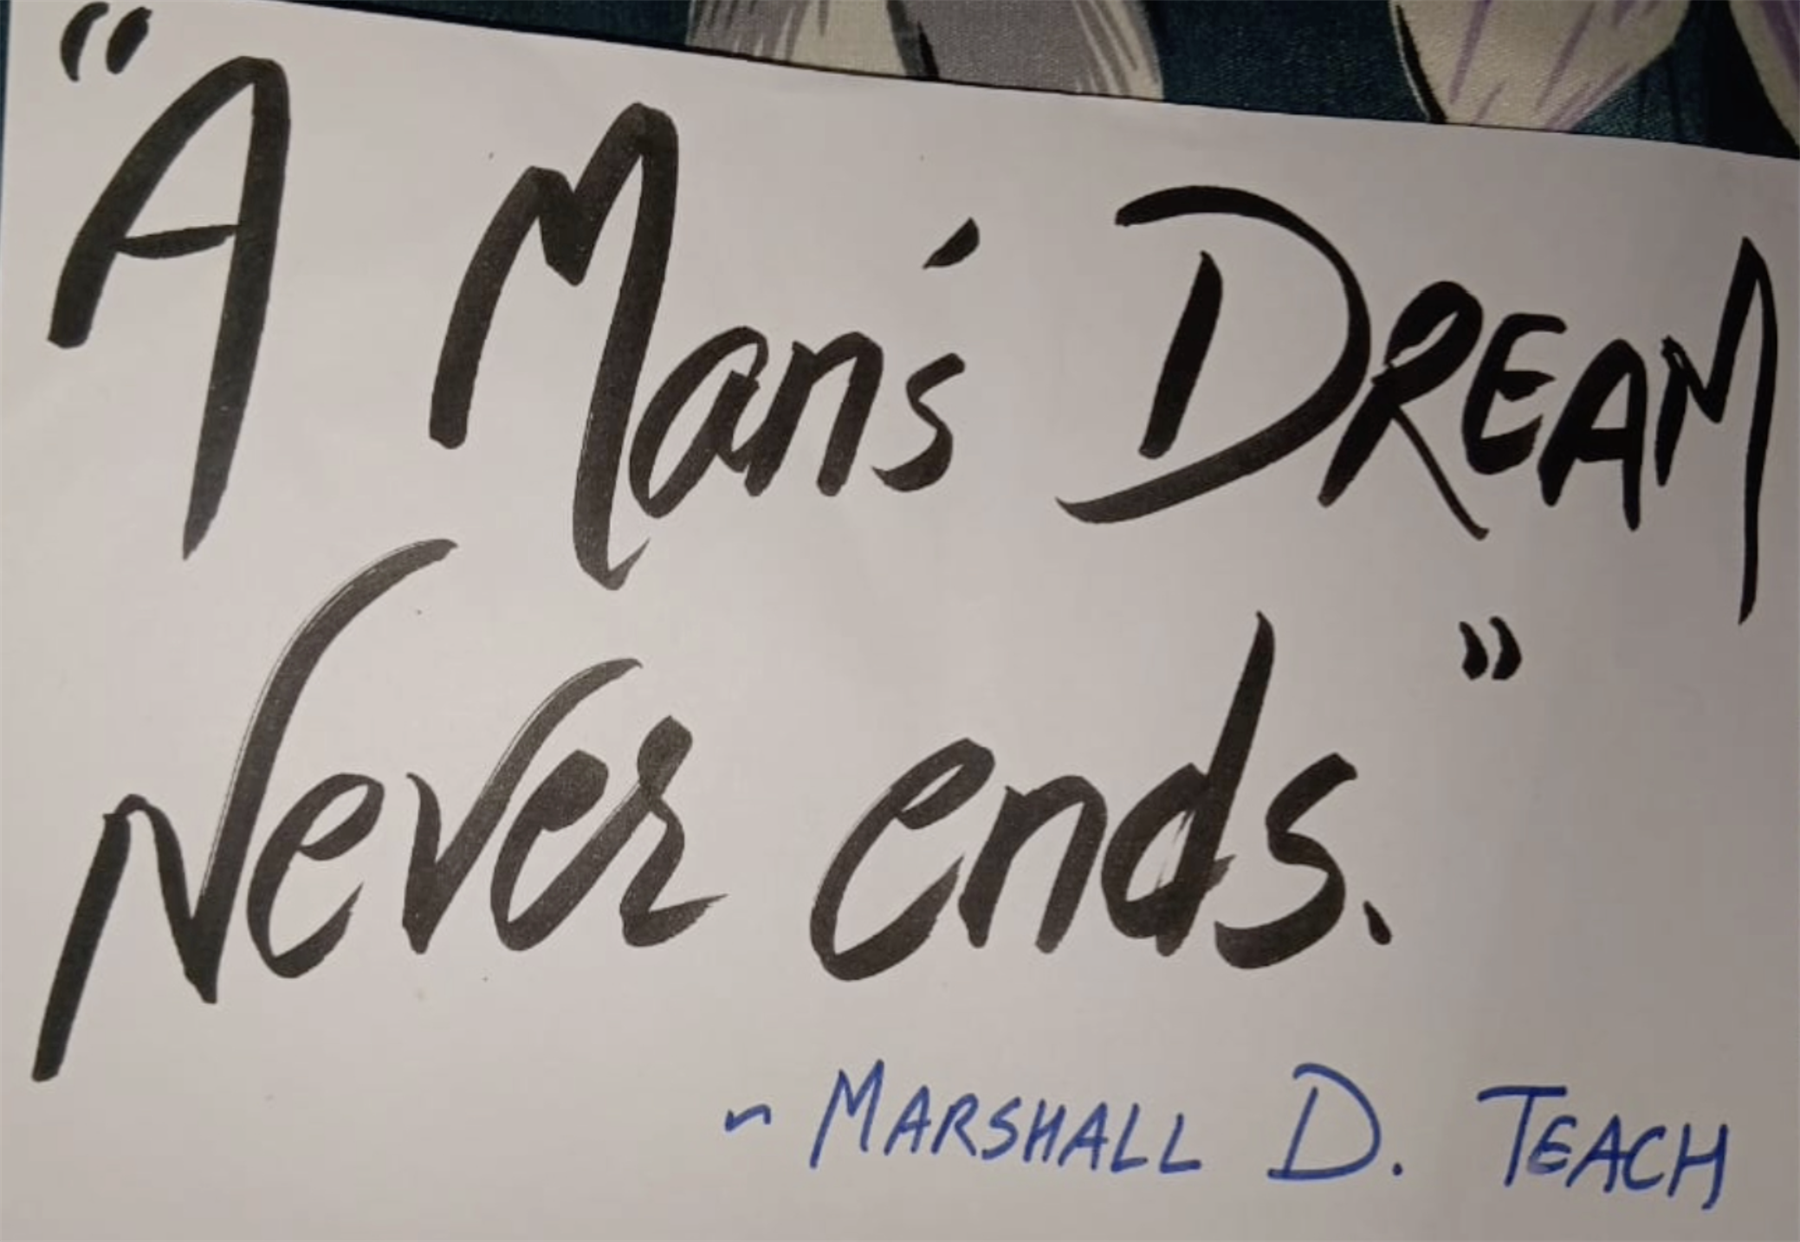 "A Man's DREAM
Never ends."
~ MARSHALL D. TEACH